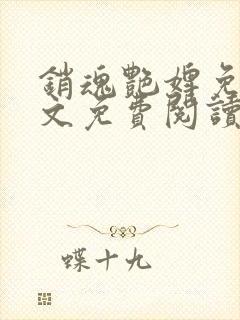 銷魂艷婢免
文免費閱讀
蝶十九